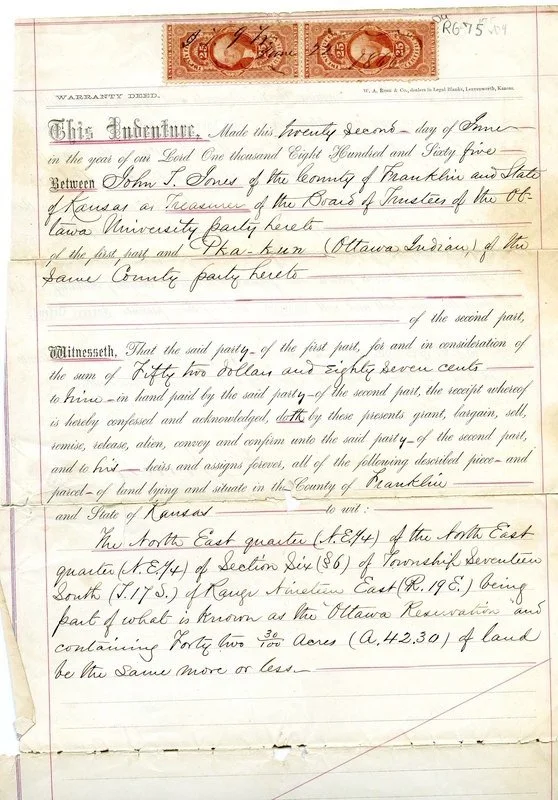 25 25
1865
RG 75
WARRANTY DEED.
W. A. Rose & Co., dealers in Legal Blanks, Leavenworth, Kansas.
This Indenture, Made this twenty second day of June
in the year of our Lord One thousand Eight Hundred and Sixty five
Between John T. Jones of the County of Franklin and State
of Kansas as Treasurer of the Board of Trustees of the Ot-
tawa University party hereto
of the first part, and Pka-kun (Ottawa Indian,) of the
Same County party hereto
of the second part,
Witnesseth, That the said party of the first part, for and in consideration of
the sum of Fifty two dollars and eighty seven cents
to him in hand paid by the said party of the second part, the receipt whereof
is hereby confessed and acknowledged, doth by these presents grant, bargain, sell,
remise, release, alien, convey and confirm unto the said party of the second part,
and to his heirs and assigns forever, all of the following described piece and
parcel of land lying and situate in the County of Franklin
and State of Kansas to wit:
The North East quarter (N.E.1/4) of the North East
quarter (N.E.1/4) of Section Six (§6) of Township Seventeen
South (T.17S.) of Range Nineteen East (R.19E.) being
part of what is known as the "Ottawa Reservation" and
containing Forty two 30/100 Acres (A.42.30) of land
be the same more or less.